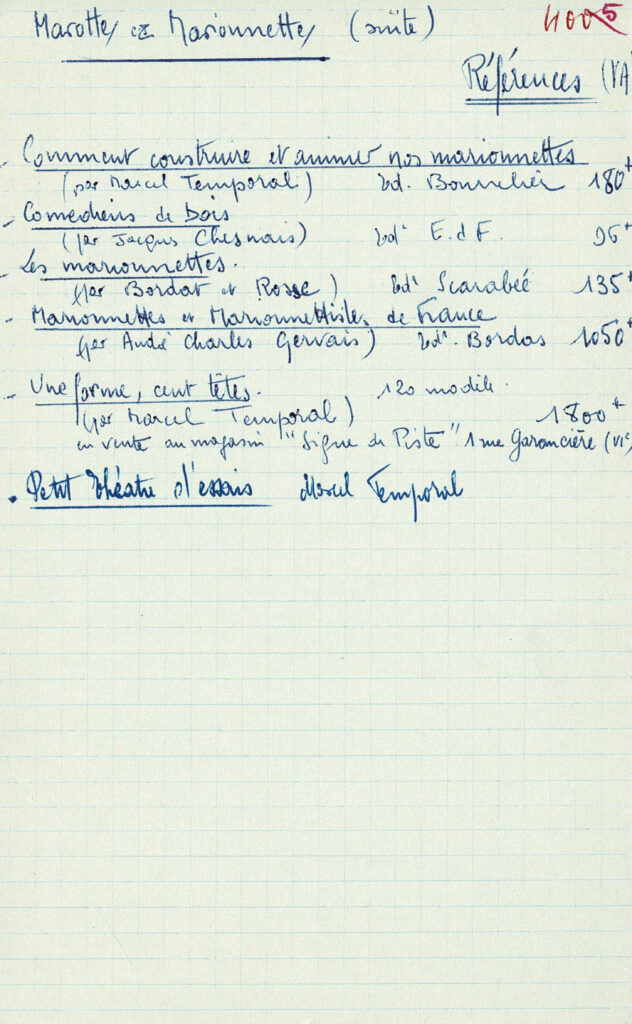 Marottes & Marionnettes (suite) 4005
Références (VA
- Comment construire et animer nos marionnettes
(par Marcel Temporal) Ed. Bourrelier 180+
- Comédiens de bois
(par Jacques Chesnais) Edt E. d F. 96+
- Les marionnettes.
(par Bordat et Rosse) Edt Scarabée 135+
- Marionnettes et Marionnettistes de France
(par André Charles Gervais) Edt. Bordas 1050+
- Une forme, cent têtes. 120 modèle.
(par Marcel Temporal) 1800+
en vente au magasin "Signe de Piste" 1 rue Garancière (VIe)
. Petit théatre d'essais Marcel Temporal